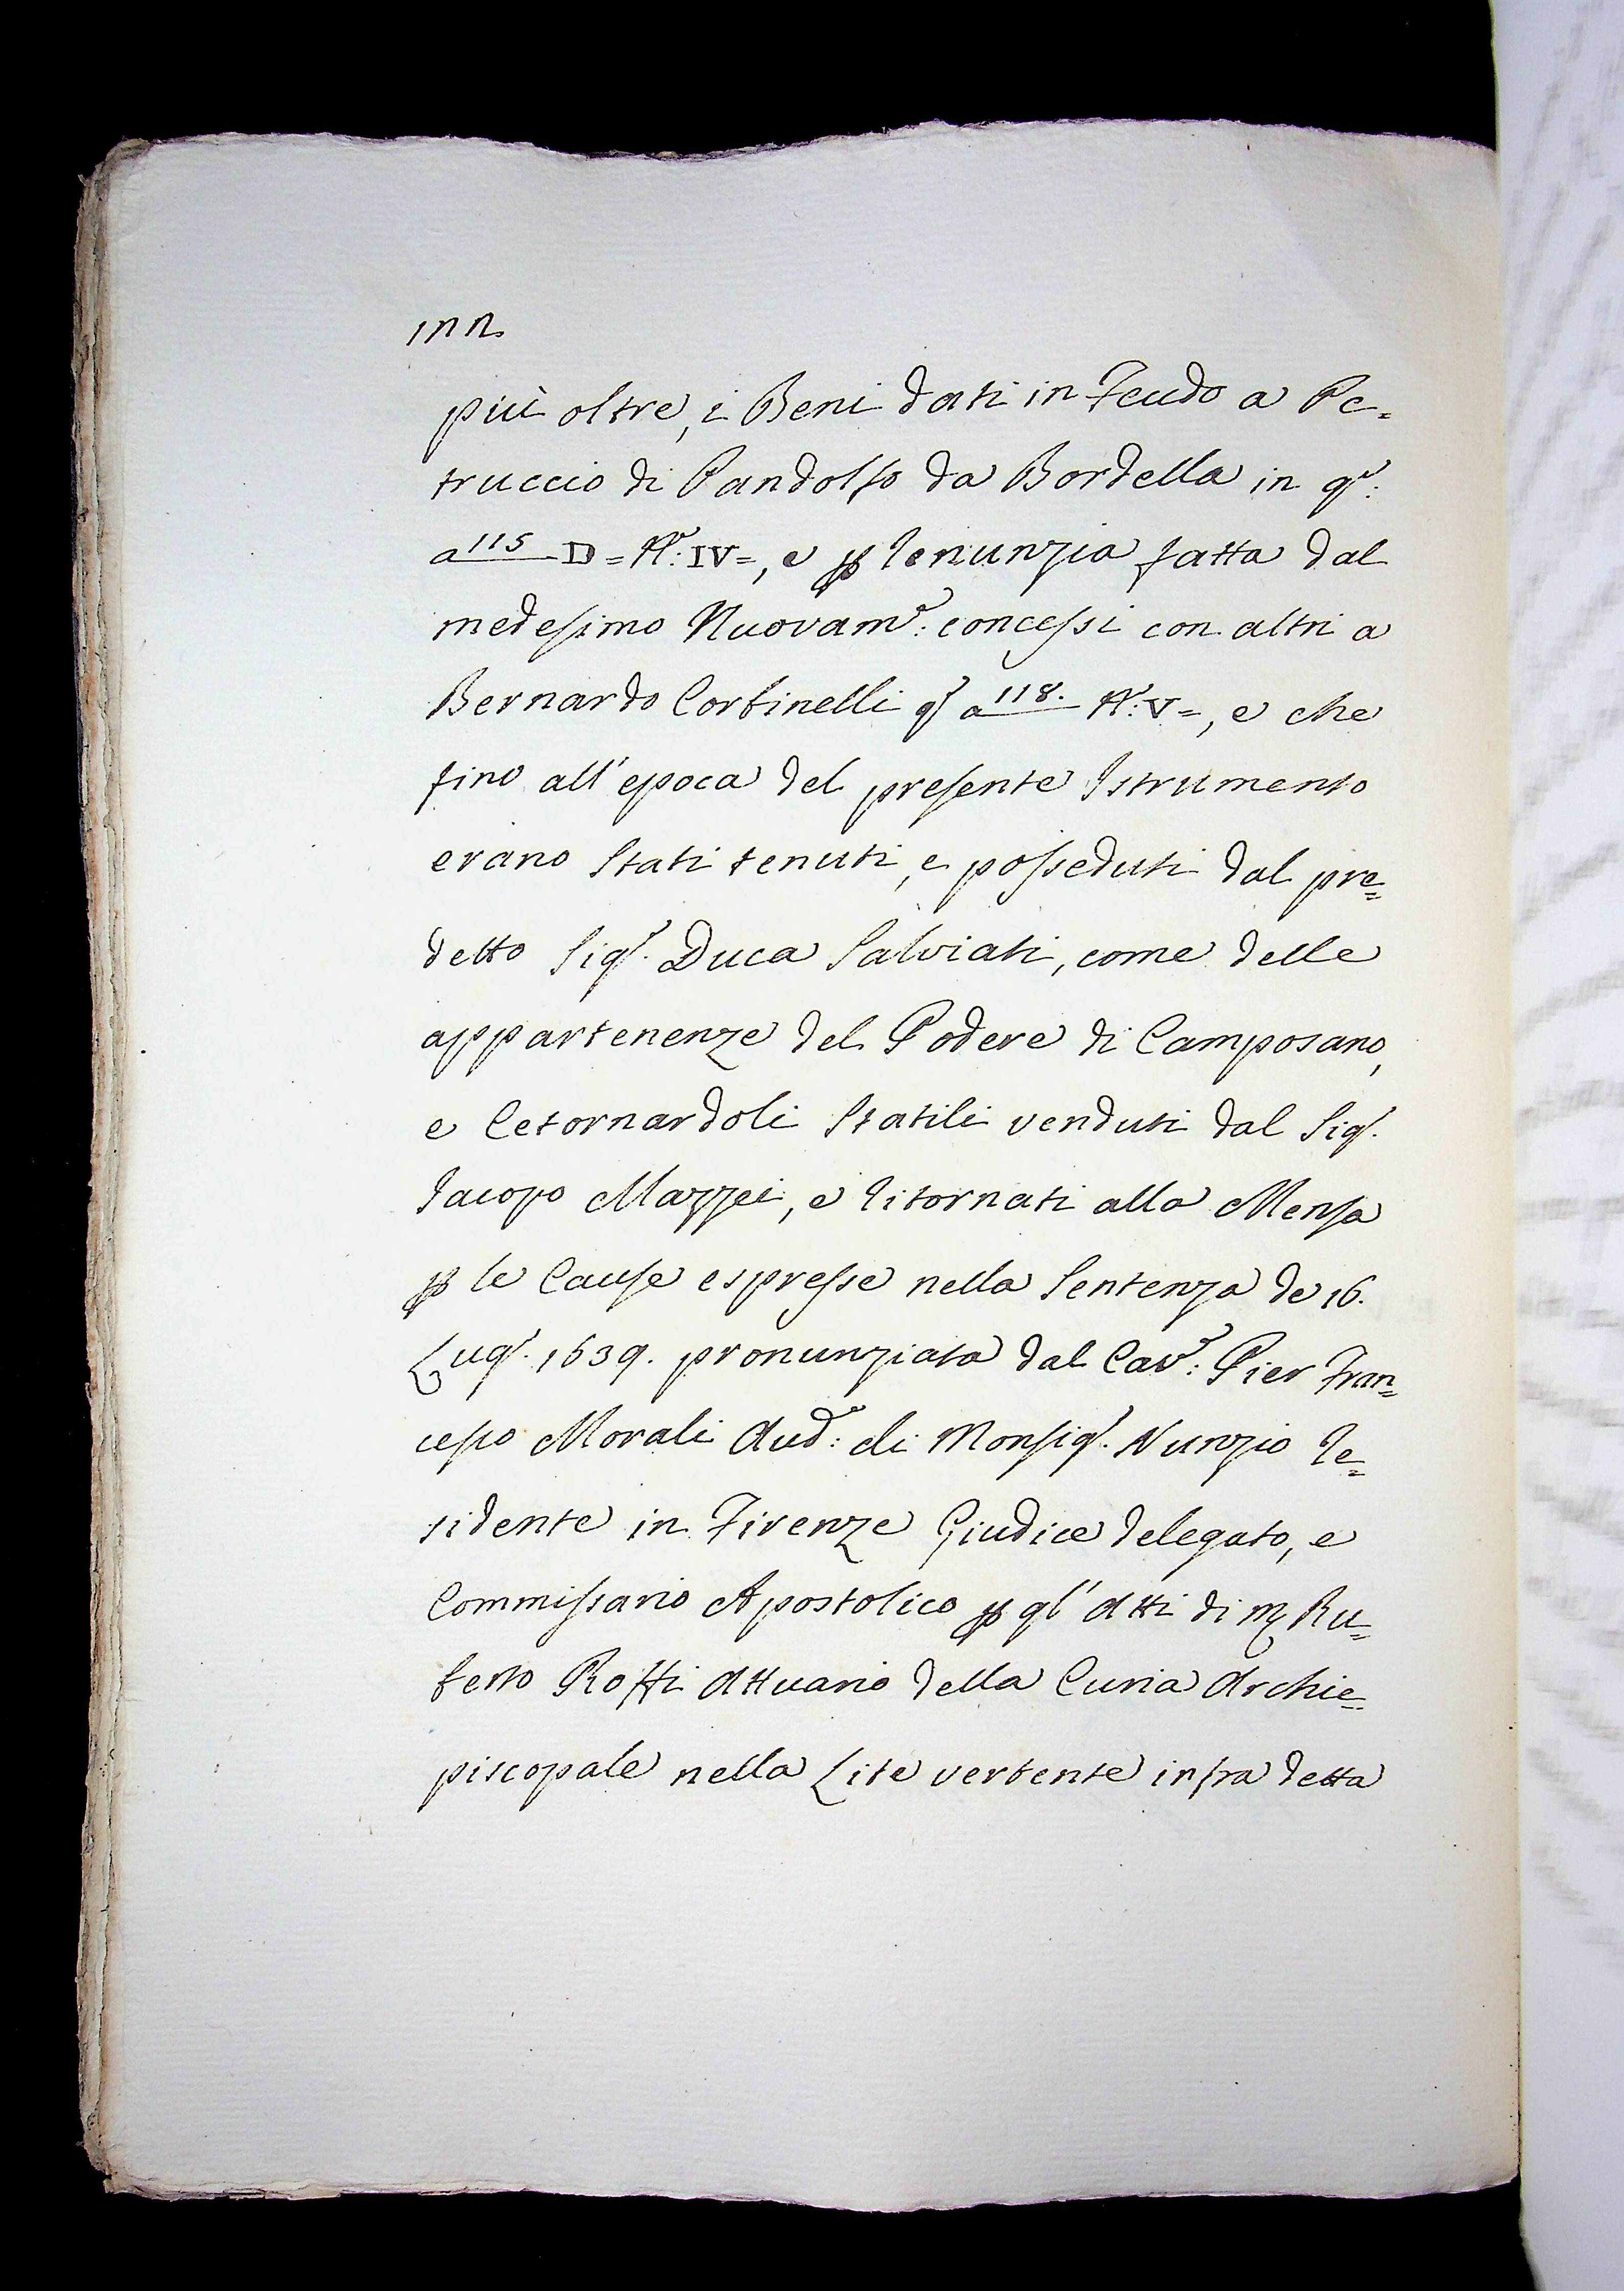 più oltre, i Beni dati in Feudo a Pe=
truccio di Pandolfo da Bordella in q.o:
a 115 D=N.o: IV=, e p renunzia fatta dal
medesimo Nuovam.e: concessi con altri a
Bernardo Corbinelli q a 118. N.o: V=, e che
fino all'epoca del presente Istrumento
erano Stati tenuti, e posseduti dal pre=
detto Sig.r Duca Salviati, come delle
appartenenze del Podere di Camposano,
e Cetornardoli Statili venduti dal Sig.r
Iacopo Mazzei, e ritornati alla Mensa
p le Cause espresse nella Sentenza de 16.
Lug. 1639. pronunziata dal Cav.e: Pier Fran=
cesco Morali Aud.e: di Monsig.r Nunzio re=
sidente in Firenze Giudice delegato, e
Commissario Apostolico p gl'Atti di M Ru=
berto Roffi Attuario della Curia Archie=
piscopale nella Lite vertente infra detta